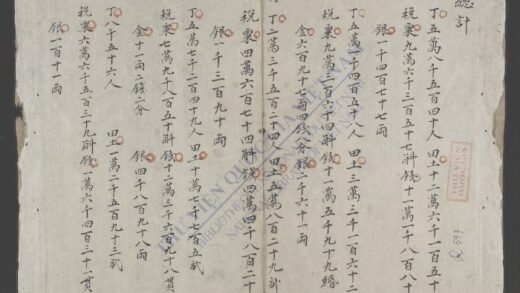 總計
丁五萬八千五百四十人 田土十二萬六千一百五十
稅粟九萬六千三百五十七斛 錢十一萬一千八百八十
銀一千四百七十七兩
丁五萬四千四百五十人 田土三萬三千一百六十二
稅粟九萬三百六十四斛 錢十一萬五千九十九緡
金六百九十七兩四錢八分 銀二千六十一兩
丁二萬三千五百二十四人 田土五萬八百二十九
稅粟四萬六百七十四斛 錢四萬四千八百二十
銀一千三百九十兩
丁五萬七千二百四十九人 田土十萬七千七百五
稅粟七萬九千八百五十斛 錢十二萬三千六百九十八貫
金十一兩二錢二分 銀四千八百九十八兩
丁八千五百十六人 田土一萬二千五百九十三
稅粟六萬六千五百三十九斛 錢一萬六千四百三十一貫
銀一百十一兩
THƯ VIỆN QUỐC GIA VIỆT NAM
Q. 597